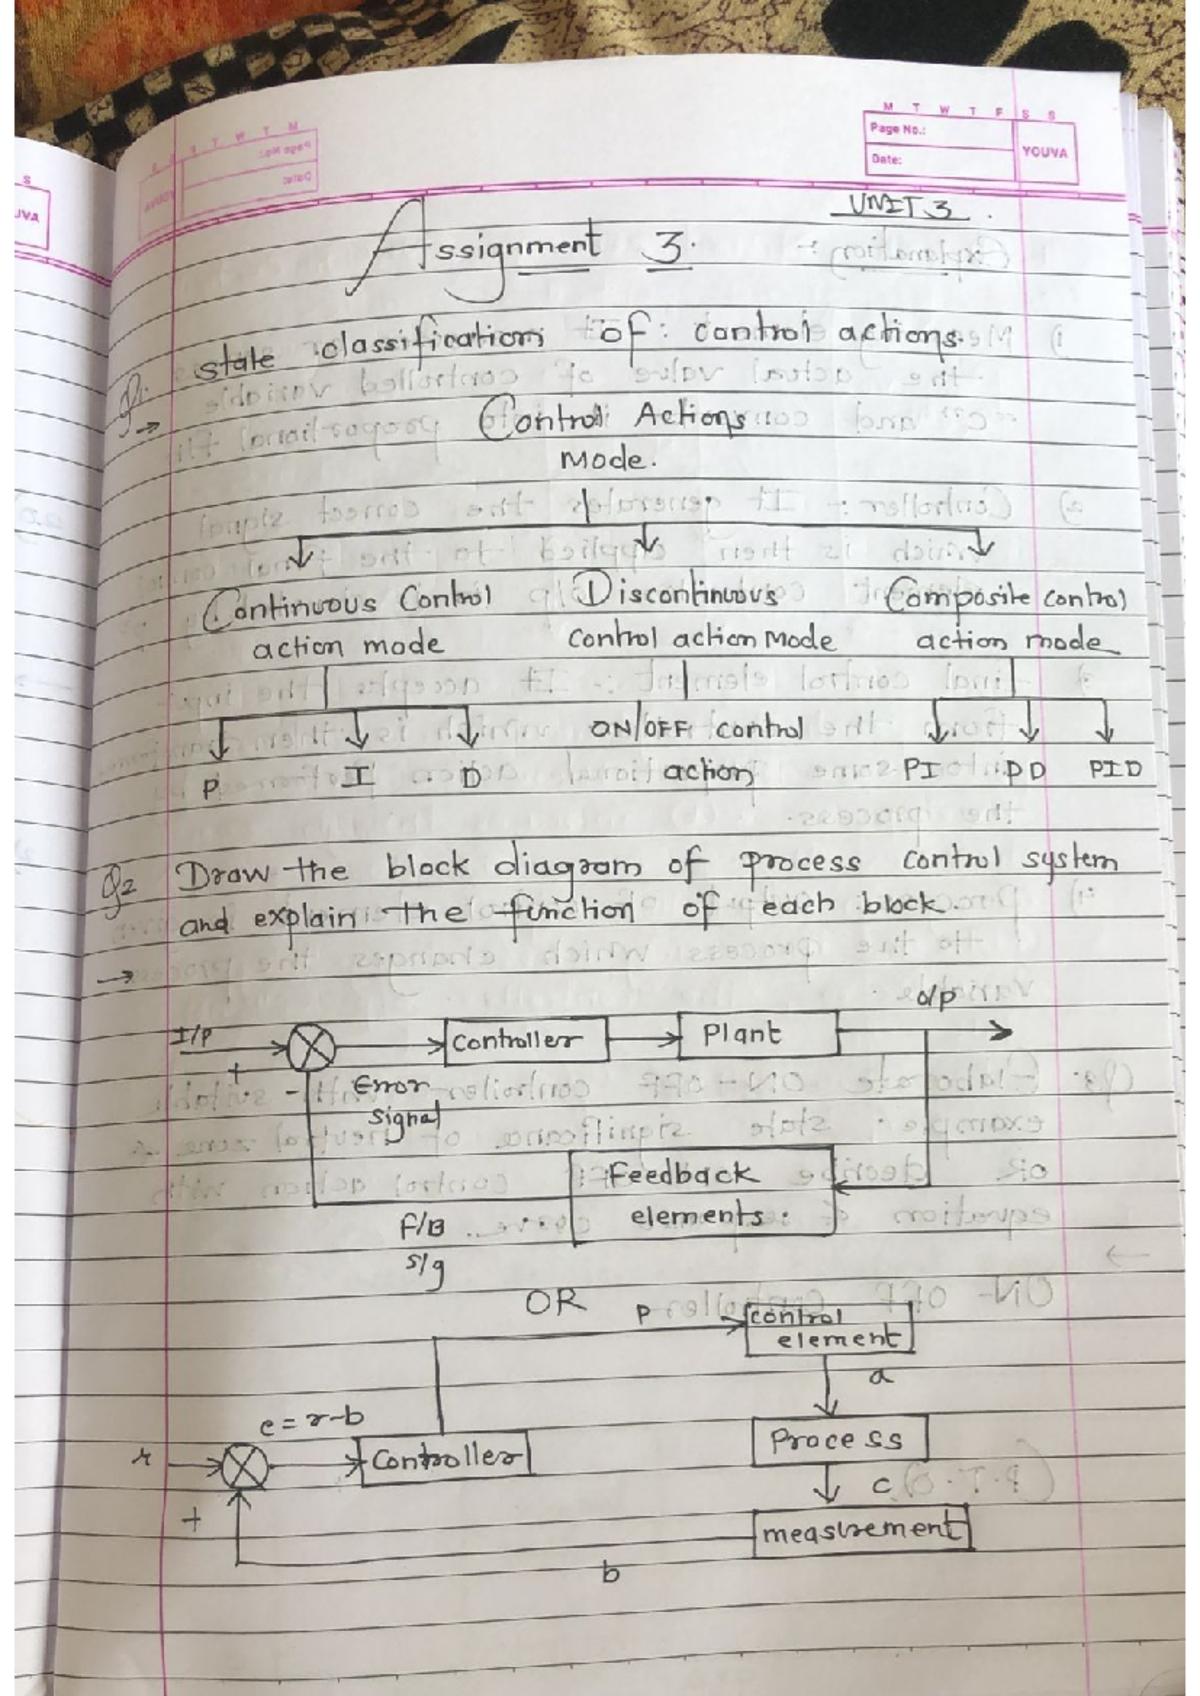 M T W T F S S
Page No.:
Date:
YOUVA
S
UVA
UNIT 3.
Assignment 3.
Q1. state classification of control actions.
→ Control Actions
Mode.
Continuous Control Discontinuous Composite control
action mode control action Mode action mode
ON/OFF control
P I D action PI PD PID
Q2 Draw the block diagram of process control system
and explain the function of each block.
→
o/p
I/P Controller Plant
+ Error -
signal
Feedback
F/B elements.
S/g
OR P control
element
a
e = r-b
r Controller Process
c
+ measurement
b